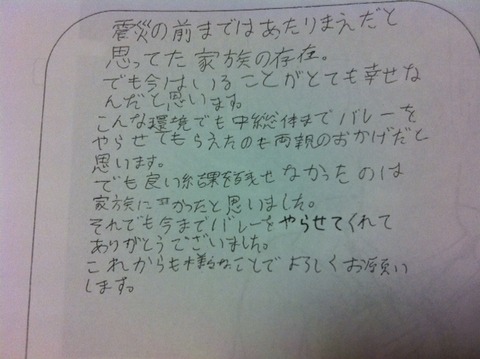 震災の前まではあたりまえだと
思ってた家族の存在。
でも今はいることがとても幸せな
んだと思います。
こんな環境でも中総体までバレーを
やらせてもらえたのも両親のおかげだと
思います。
でも良い結果を残せなかったのは
家族に かったと思いました。
それでも今までバレーをやらせてくれて
ありがとうございました。
これからも様々なことでよろしくお願い
します。